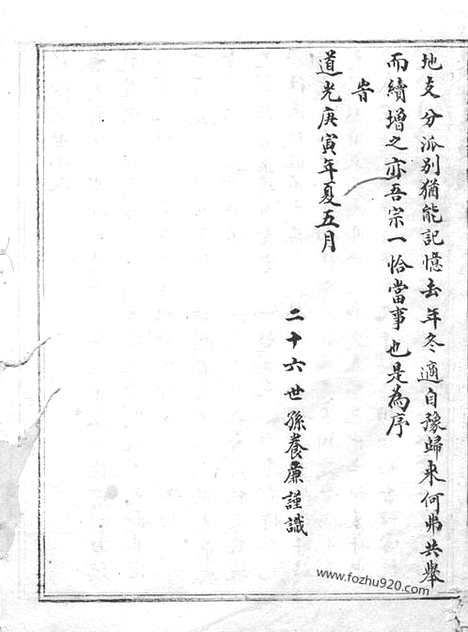 地支分派別猶能記憶去年冬適自豫歸來何弗共舉
而續增之亦吾宗一恰當事也是為序
旹
道光庚寅年夏五月
二十六世孫養廉謹識
www.fozhu920.com